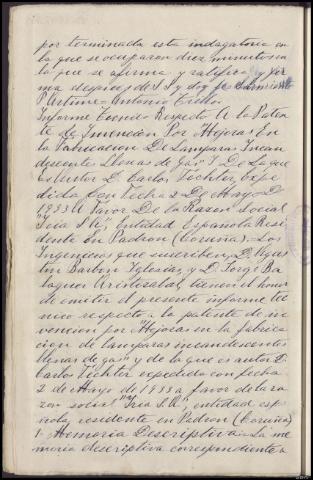 por terminada esta indagatoria en
la que se ocuparon diez minutos en
la que se afirma y ratifica y fir
ma despues de S.S. y doy fe
P. Artime = Antonio Trello
Informe Tecnico Respecto A la Paten
te de Invención Por "Mejoras En
La Fabricacion De Lamparas Incan
descentes Llenas de Gas" Y De La que
Es Autor D. Carlos Téchter Expe
dida Con Fecha 2 De Mayo D
1933 A Favor De la Razon Social
"Iria S.A", Entidad Española Resi
dente En Padron (Coruña). Los
Ingenieros que suscriben, D. Agus
tin Barbon Iglesias, y D. Jorge Ba
laguer Aristizabal, tienen el honor
de emitir el presente informe téc
nico respecto a la patente de in
vencion por "Mejoras en la fabrica
cion de lamparas incandescentes
llenas de gas" y de la que es autor D.
Carlos Téchter expedida con fecha
2 de Mayo de 1933 a favor de la ra
zon social "Iria S.A", entidad espa
ñola, residente en Padron (Coruña)
1- Memoria Descriptiva = La me
moria descriptiva correspondiente a